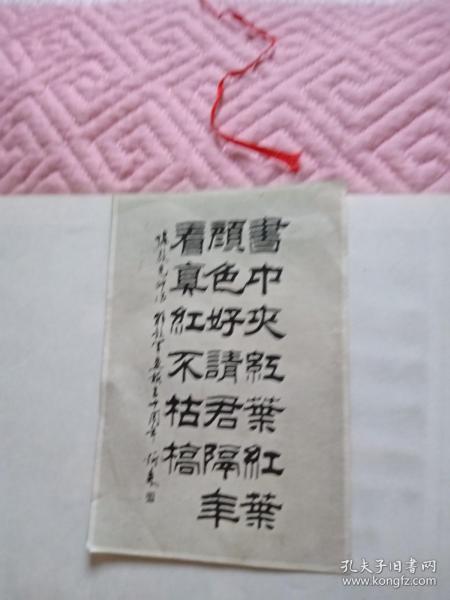 書中夾紅葉紅葉
顏色好請君隔年
看真紅不枯槁
孔夫子旧书网
www.kongfz.com